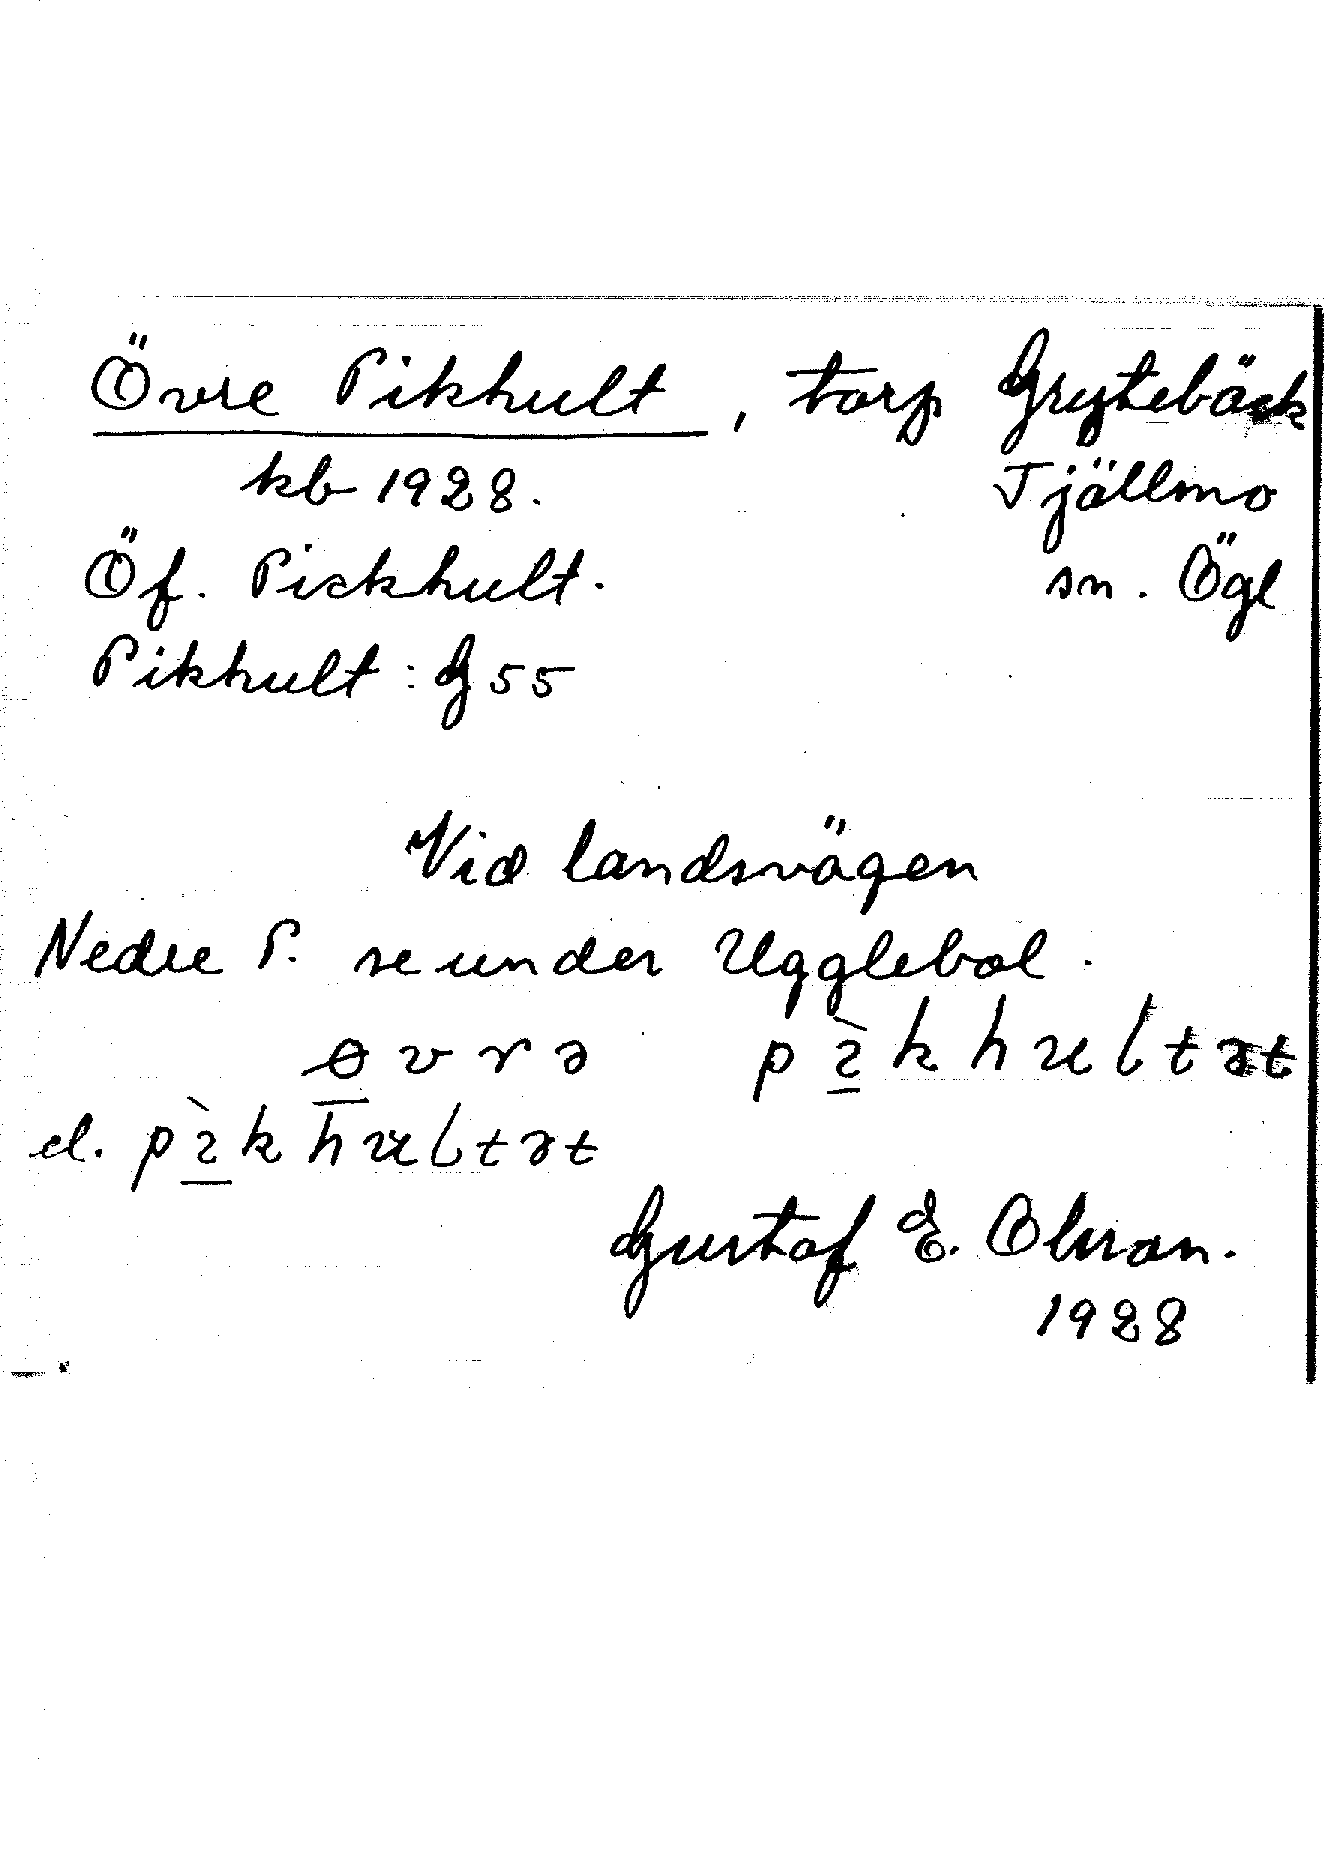 Övre Pikhult, torp Grytebäck
kb 1928. Tjällmo
Öf. Pickhult. sn. Ögl
Pikhult: G 55
Vid landsvägen
Nedre P. se under Ugglebol.
øvrə pìkhultət
el. pìkhultət
Gustaf E. Olsson.
1928